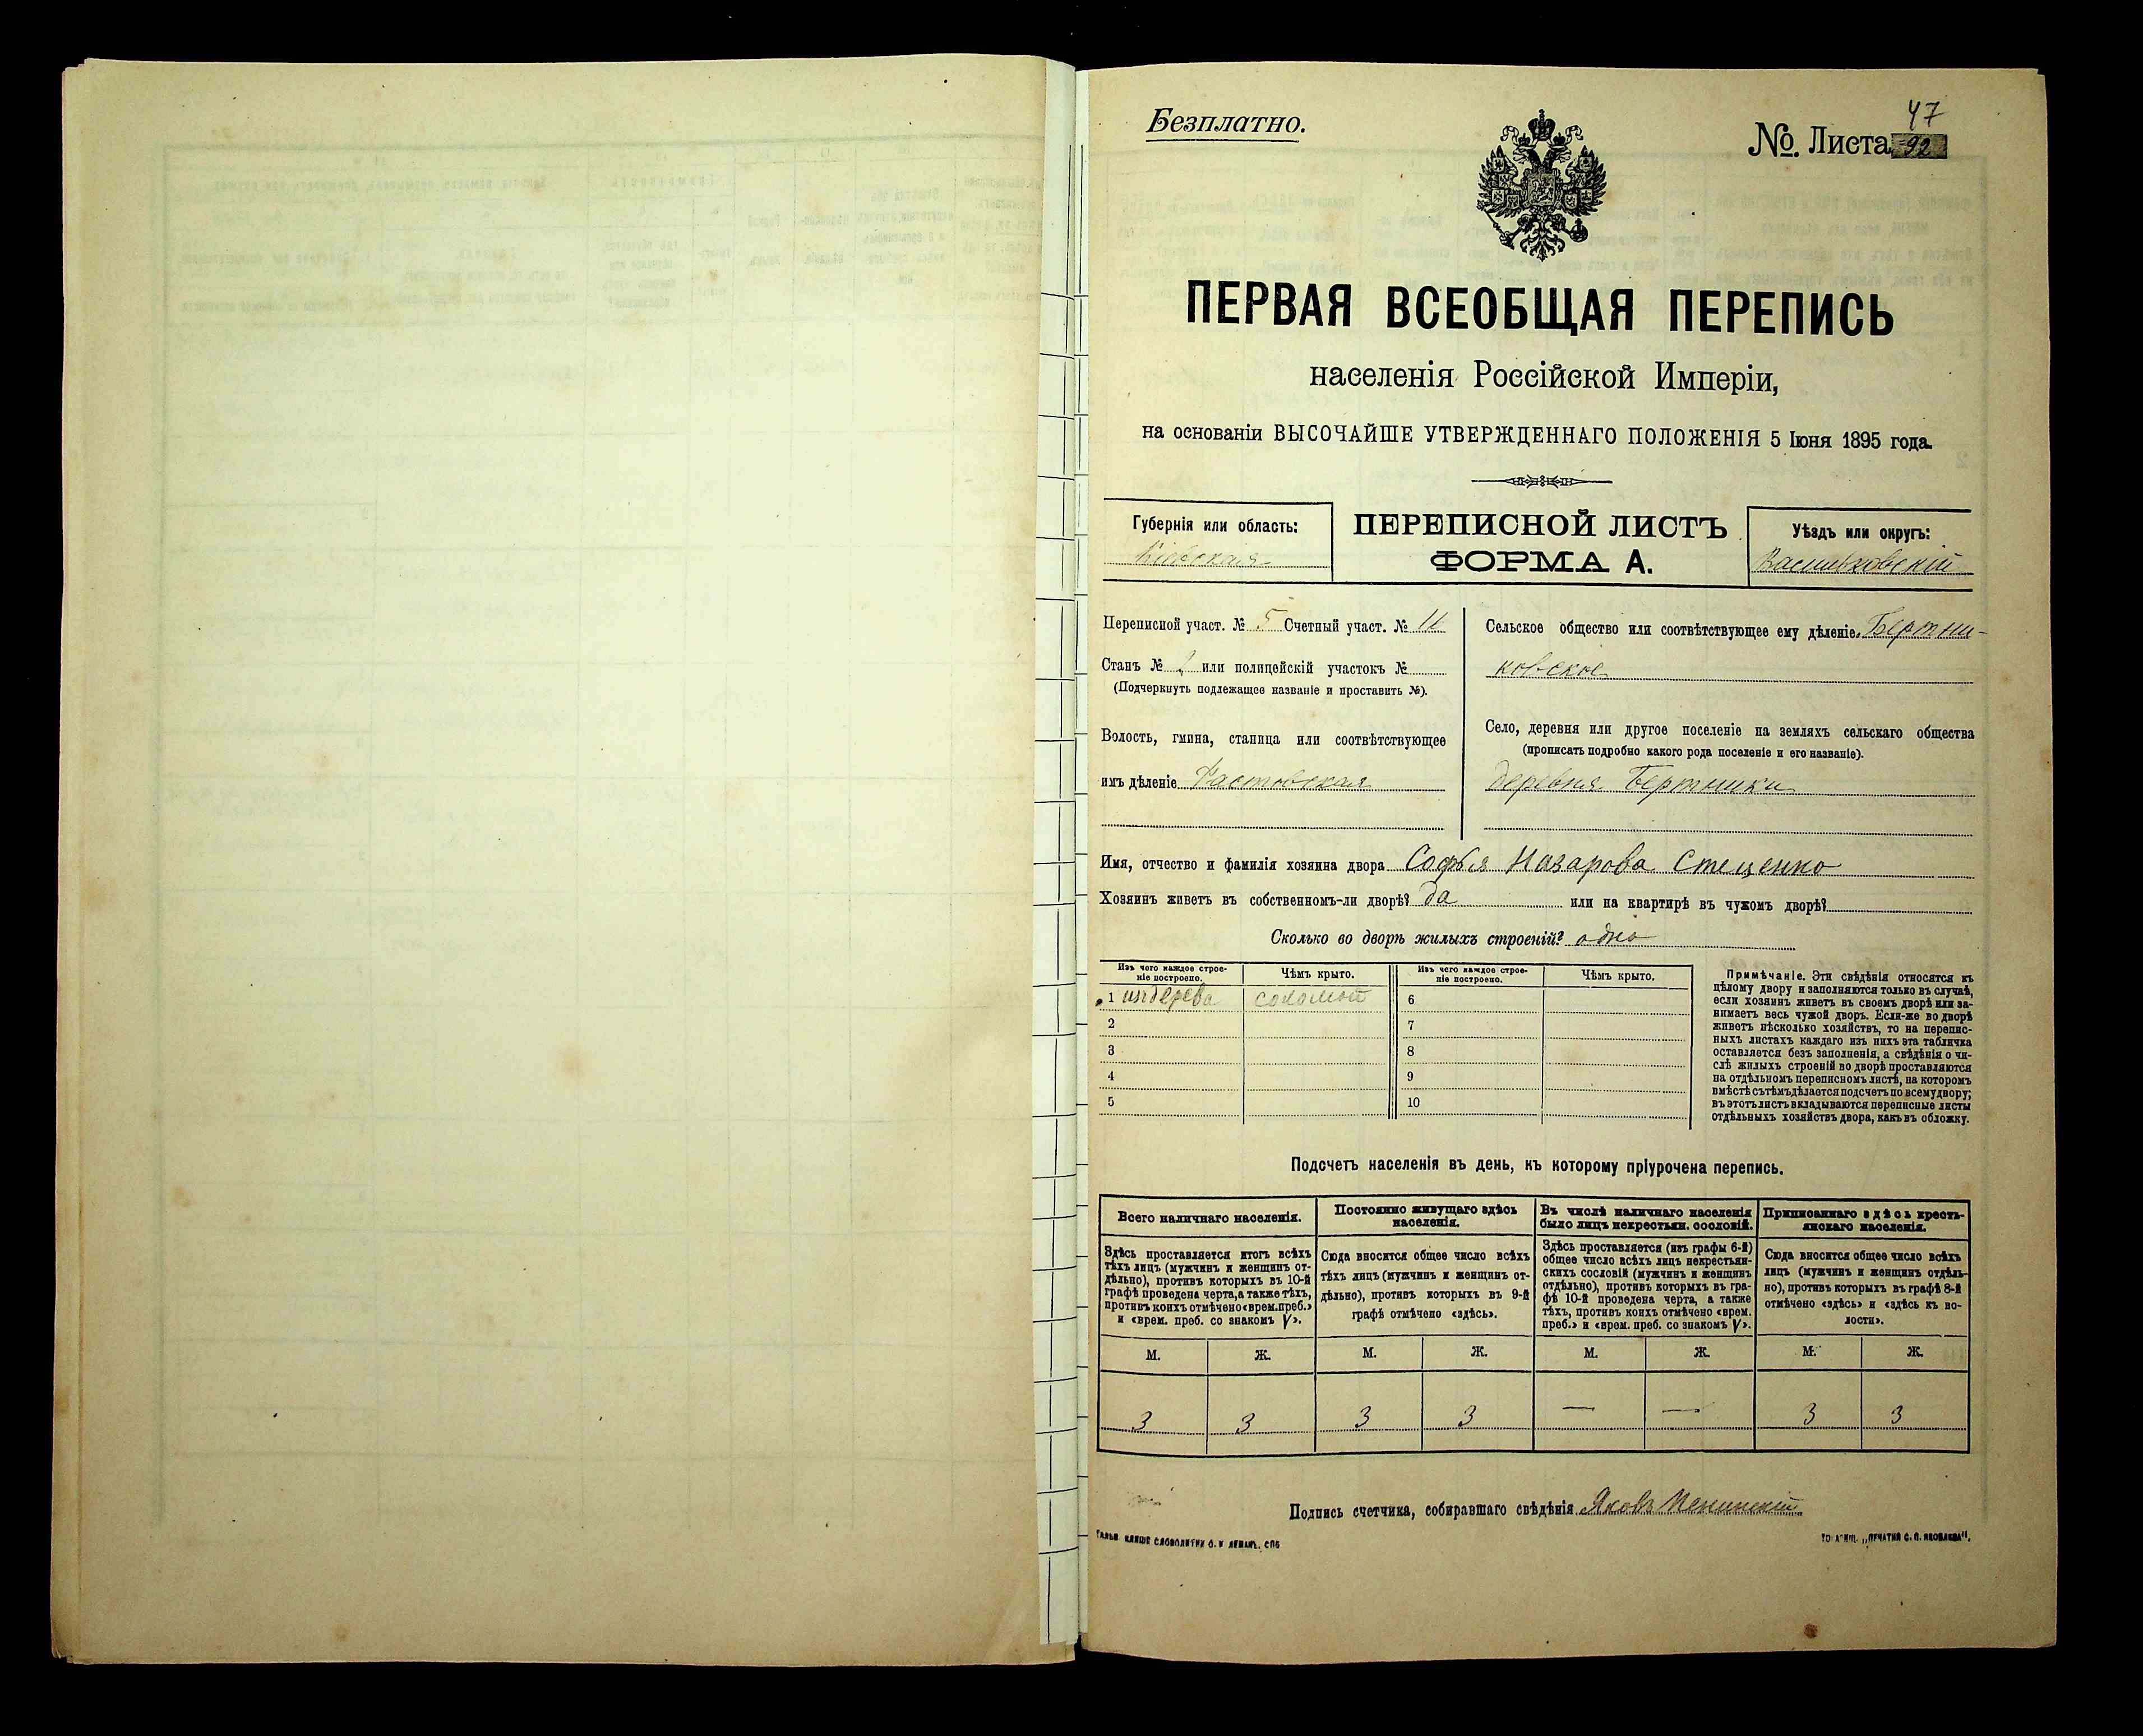 Безплатно.
47
№. Листа 92
ПЕРВАЯ ВСЕОБЩАЯ ПЕРЕПИСЬ
населенія Россійской Имперіи,
на основаніи ВЫСОЧАЙШЕ УТВЕРЖДЕННАГО ПОЛОЖЕНІЯ 5 Іюня 1895 года.
Губернія или область:
Кіевская
ПЕРЕПИСНОЙ ЛИСТЪ
ФОРМА А.
Уѣздъ или округъ:
Васильковскій
Переписной участ. № 5 Счетный участ. № 11
Станъ № 2 или полицейскій участокъ №
(Подчеркнуть подлежащее названіе и проставить №).
Волость, гмина, станица или соотвѣтствующее
имъ дѣленіе Фастовская
Сельское общество или соотвѣтствующее ему дѣленіе. Бертни-
ковское
Село, деревня или другое поселеніе на земляхъ сельскаго общества
(прописать подробно какого рода поселеніе и его названіе).
деревня Бертники
Имя, отчество и фамилія хозяина двора Софья Назарова Стеценко
Хозяинъ живетъ въ собственномъ-ли дворѣ? да или на квартирѣ въ чужомъ дворѣ?
Сколько во дворѣ жилыхъ строеній? одно
Изъ чего каждое строе-
ніе построено.
Чѣмъ крыто.
Изъ чего каждое строе-
ніе построено.
Чѣмъ крыто.
1 издерева соломой 6
2 7
3 8
4 9
5 10
Примѣчаніе. Эти свѣдѣнія относятся къ
цѣлому двору и заполняются только въ случаѣ,
если хозяинъ живетъ въ своемъ дворѣ или за-
нимаетъ весь чужой дворъ. Если-же во дворѣ
живетъ нѣсколько хозяйствъ, то на перепис-
ныхъ листахъ каждаго изъ нихъ эта табличка
оставляется безъ заполненія, а свѣдѣнія о чи-
слѣ жилыхъ строеній во дворѣ проставляются
на отдѣльномъ переписномъ листѣ, на которомъ
вмѣстѣ съ тѣмъ дѣлается подсчетъ по всему двору;
въ этотъ листъ вкладываются переписные листы
отдѣльныхъ хозяйствъ двора, какъ въ обложку.
Подсчетъ населенія въ день, къ которому пріурочена перепись.
Всего наличнаго населенія.
Здѣсь проставляется итогъ всѣхъ
тѣхъ лицъ (мужчинъ и женщинъ от-
дѣльно), противъ которыхъ въ 10-й
графѣ проведена черта, а также тѣхъ,
противъ коихъ отмѣчено «врем. преб.»
и «врем. преб. со знакомъ V».
Постоянно живущаго здѣсь
населенія.
Сюда вносится общее число всѣхъ
тѣхъ лицъ (мужчинъ и женщинъ от-
дѣльно), противъ которыхъ въ 9-й
графѣ отмѣчено «здѣсь».
Въ числѣ наличнаго населенія
было лицъ некрестьян. сословій.
Здѣсь проставляется (изъ графы 6-й)
общее число всѣхъ лицъ некрестьян-
скихъ сословій (мужчинъ и женщинъ
отдѣльно), противъ которыхъ въ гра-
фѣ 10-й проведена черта, а также
тѣхъ, противъ коихъ отмѣчено «врем.
преб.» и «врем. преб. со знакомъ V».
Приписаннаго здѣсь кресть-
янскаго населенія.
Сюда вносится общее число всѣхъ
лицъ (мужчинъ и женщинъ отдѣль-
но), противъ которыхъ въ графѣ 8-й
отмѣчено «здѣсь» и «здѣсь къ во-
лости».
М. Ж. М. Ж. М. Ж. М. Ж.
3 3 3 3 — — 3 3
Подпись счетчика, собиравшаго свѣдѣнія Яковъ